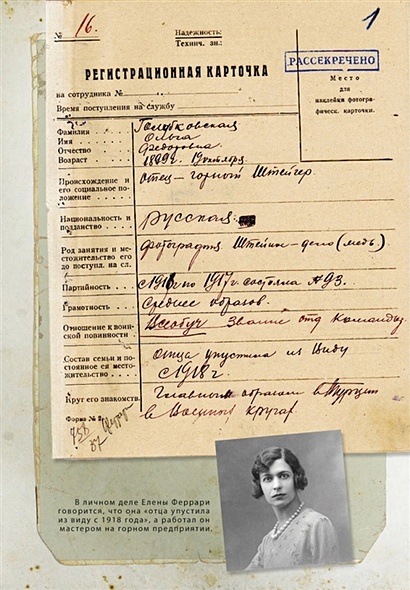 № 16.
Надежность:
Технич. зн.:
1
РАССЕКРЕЧЕНО
РЕГИСТРАЦИОННАЯ КАРТОЧКА
на сотрудника №
Время поступления на службу
Место
для
наклейки фотогра-
фическ. карточки.
Фамилия Голубковская
Имя Ольга
Отчество Федоровна
Возраст 1899г.
Происхождение и
его социальное по-
ложение отец – горный Штейгер.
Национальность и
подданство русская
Род занятия и ме-
стожительство его
до поступл. на сл. фотография Штейн-дело (медь).
Партийность с 1916 по 1917г. состояла
Грамотность Среднее образов.
Отношение к воин-
ской повинности Всеобуч Звание отд команды
Состав семьи и по-
стоянное ея место-
жительство отца упустила из виду
с 1918 г.
Круг его знакомств. Главным образом в Турции
в военных кругах
Форма № 2
В личном деле Елены Феррари
говорится, что она «отца упустила
из виду с 1918 года», а работал он
мастером на горном предприятии.